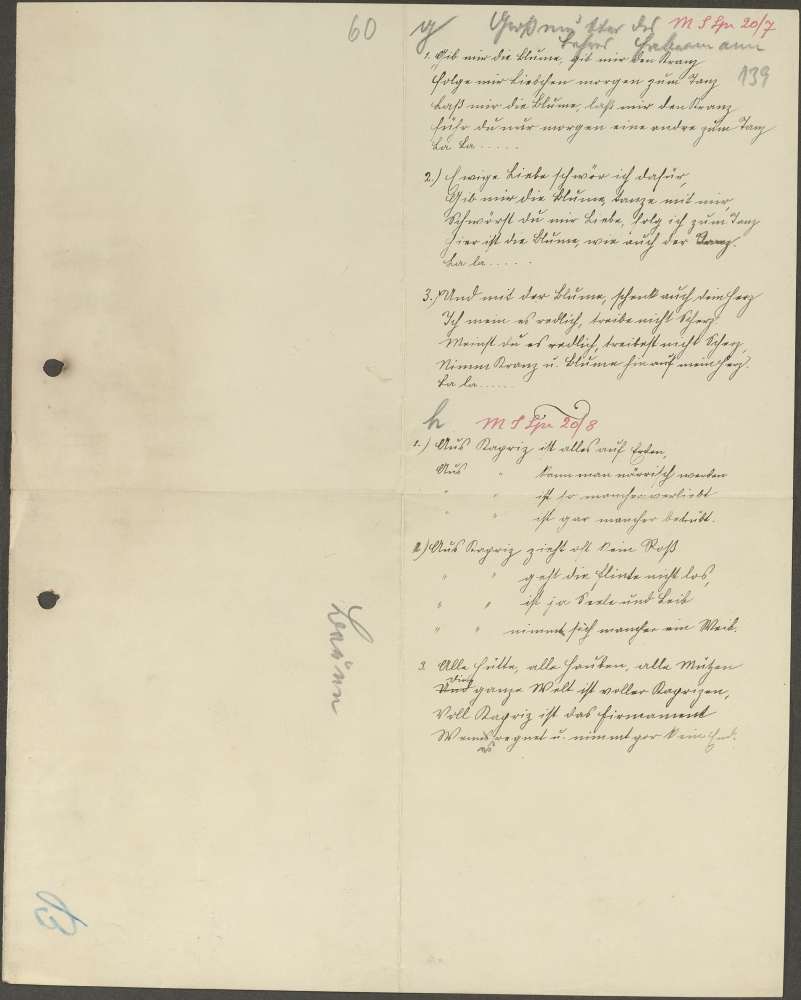 60
g Großmutter des
M S Lpr 20/7
Lehrers
139
1. Gib mir die Blume, gib mir den Kranz
Folge mir Liebchen morgen zum Tanz
Laß mir die Blume, laß mir den Kranz
Führ du nur morgen eine andre zum Tanz
La La .....
2.) Ewige Liebe schwör ich dafür,
Gib mir die Blume, tanze mit mir,
Schwörst du mir Liebe, folg ich zum Tanz
Hier ist die Blume, wie auch der Kranz.
La la .....
3.) Und mit der Blume, schenk auch dein Herz
Ich mein es redlich, treibe nicht Scherz.
Meinst du es redlich, treibest nicht Scherz,
Nimm Kranz u. Blume hin auf mein Herz.
La la .....
h M S Lpr 20/8
1.) Aus Kapriz ist alles auf Erden,
Aus " kann man närrisch werden
" " ist so mancher verliebt
" " ist gar mancher betrübt.
2.) Aus Kapriz zieht oft kein Roß
" " geht die Flinte nicht los,
" " ist ja Seele und Leib
" " nimmt sich mancher ein Weib.
3. Alle Hütte, alle Hauben, alle Mützen
Die
Und ganze Welt ist voller Kaprizen,
Voll Kapriz ist das Firmament
Wenns regnet u. nimmt gar kein End.
es
Braun